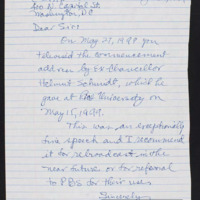 400 N. Capitol St.
Washington, DC
Dear Sirs:
On May 29, 1999 you
televised the commencement
address by Ex Chancellor
Helmut Schmidt, which he
gave at University on
May 1999.
This was an exceptionally
fine speech and I recommend
it for rebroadcast in the
near future or to referral
to PBS for their use.
Sincerely,